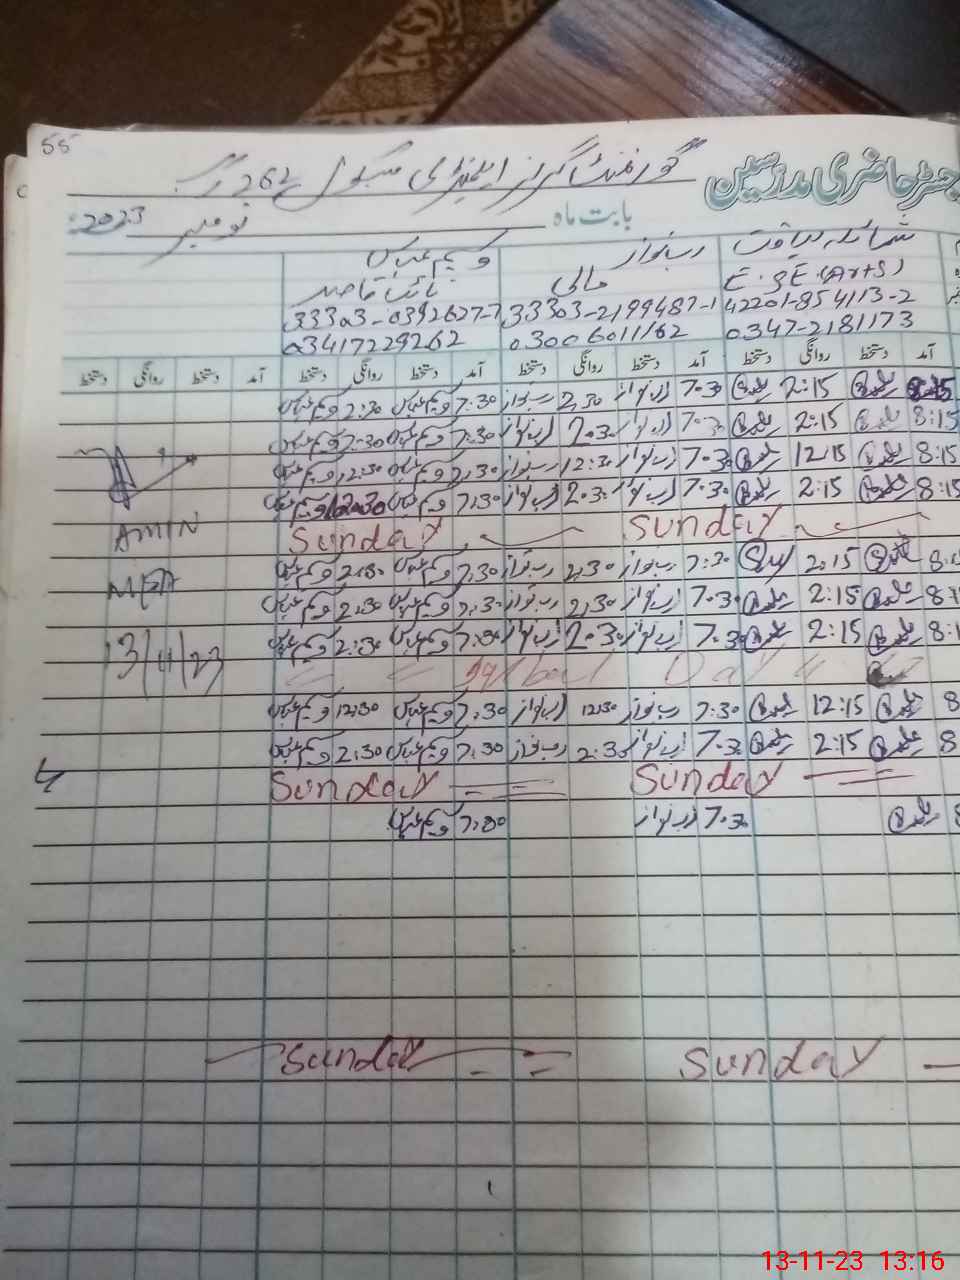 55
گورنمنٹ گرلز ایلیمنٹری سکول 262 گ ب
رجسٹر حاضری مدرسین
بابت ماہ نومبر 2023ء
شمائلہ لیاقت رب نواز وسیم عباس
E.S.E.(Arts) مالی نائب قاصد
42201-854113-2 33303-2199487-1 33303-0392627-7
0347-2181173 03006011162 03417229262
آمد دستخط روانگی دستخط آمد دستخط روانگی دستخط آمد دستخط روانگی دستخط آمد دستخط روانگی دستخط
8:15 2:15 7:30 رب نواز 2:30 رب نواز 7:30 وسیم عباس 2:30 وسیم عباس
8:15 2:15 7:30 رب نواز 2:30 رب نواز 7:30 وسیم عباس 2:30 وسیم عباس
8:15 12:15 7:30 رب نواز 12:30 رب نواز 7:30 وسیم عباس 12:30 وسیم عباس
8:15 2:15 7:30 رب نواز 2:30 رب نواز 7:30 وسیم عباس وسیم عباس
Sunday Sunday AMIN
2:15 7:30 رب نواز 2:30 رب نواز 7:30 وسیم عباس 2:30 وسیم عباس MEA
2:15 7:30 رب نواز 2:30 رب نواز 7:30 وسیم عباس 2:30 وسیم عباس
2:15 7:30 رب نواز 2:30 رب نواز 7:30 وسیم عباس 2:30 وسیم عباس
Day 13/11/23
12:15 7:30 رب نواز 12:30 رب نواز 7:30 وسیم عباس 12:30 وسیم عباس
2:15 7:30 رب نواز 2:30 رب نواز 7:30 وسیم عباس 2:30 وسیم عباس
Sunday Sunday
7:30 رب نواز 7:30 وسیم عباس
Sunday Sunday
13-11-23 13:16